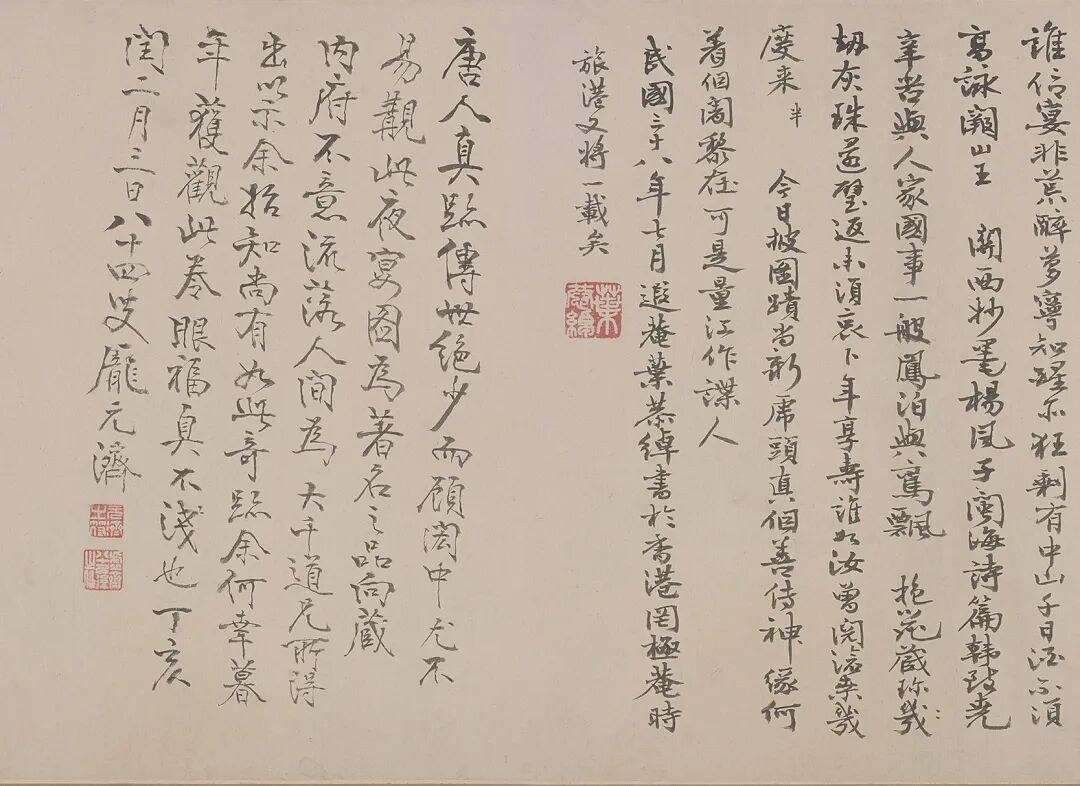 誰信宴非荒醉夢寧知醒不狂剩有中山千日酒不須
高詠關山王　關西妙墨楊風子閩海詩篇韓致堯
辛苦與人家國事一般鳳泊與鸞飄　抱器藏珍幾
劫灰珠還璧返未須哀卜年享壽誰如汝曾閱滄桑幾
廢來半　今日披圖蹟尚新虎頭真個善傳神緣何
着個闍黎在可是量江作諜人
民國三十八年七月遐菴葉恭綽書於香港罔極菴時
旅港又將一載矣
葉恭綽
唐人真跡傳世絕少而顧閎中尤不
易覯此夜宴圖為著名之品向藏
內府不意流落人間為大千道兄所得
出以示余始知尚有如此奇跡余何幸暮
年獲觀此卷眼福真不淺也丁亥
閏二月三日八十四叟龐元濟